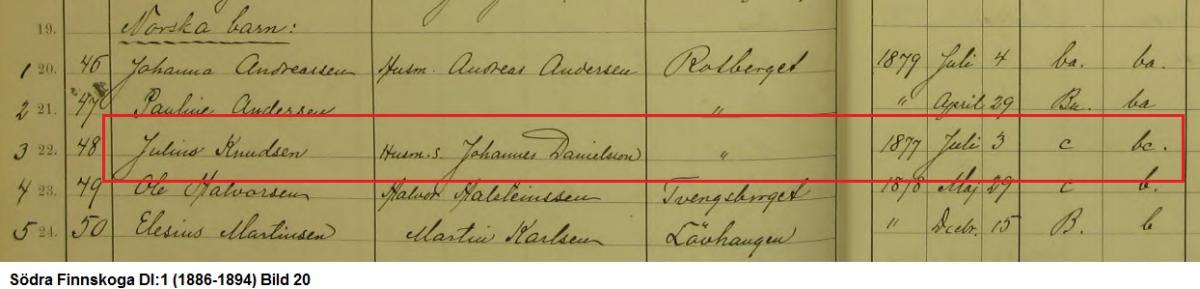 19. Norska barn:
1 20. 46 Johanna Andreassen Husm. Andreas Andersen Rotberget 1879 Juli 4 ba. ba.
2 21. 47 Pauline Andersen " " April 29 Ba. ba
3 22. 48 Julius Knudsen Husm.s. Johannes Danielsson " 1877 Juli 3 c bc.
4 23. 49 Ole Halvorsen Halvor Halsteinssen Tvengsberget 1878 Maj 29 c b.
5 24. 50 Elesius Martinsen Martin Karlsen Lövhaugen " Decbr. 15 B. b
Södra Finnskoga DI:1 (1886-1894) Bild 20